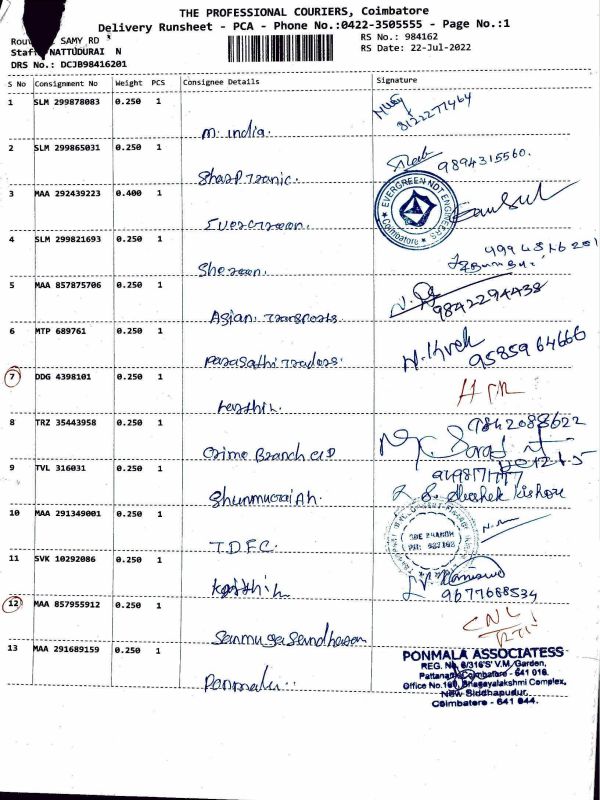 THE PROFESSIONAL COURIERS, Coimbatore
Delivery Runsheet - PCA - Phone No.:0422-3505555 - Page No.:1
SAMY RD RS No.: 984162
NATTUDURAI N RS Date: 22-Jul-2022
DRS No.: DCJB98416201
S No Consignment No Weight PCS Consignee Details Signature
1 SLM 299878083 0.250 1 M. india. 8122277464
2 SLM 299865031 0.250 1 Sharptronic. 9894315560.
3 MAA 292439223 0.400 1 Evergreen. EVERGREEN NDT ENGINEERS Coimbatore
4 SLM 299821693 0.250 1
5 MAA 857875706 0.250 1 Asian. Transports 9842294438
6 MTP 689761 0.250 1 Parasathi traders. 9585964666
7 DDG 4398101 0.250 1
8 TRZ 35443958 0.250 1 Crime Branch CID 9842088622
9 TVL 316031 0.250 1 Shunmugaiah.
10 MAA 291349001 0.250 1 T.D.F.C.
11 SVK 10292086 0.250 1 Karthik 9677688534
12 MAA 857955912 0.250 1
13 MAA 291689159 0.250 1 Ponmala..
PONMALA ASSOCIATESS
REG. No. 6/316'S' V.M. Garden,
Coimbatore - 641 016.
Office No. Bhagayalakshmi Complex,
New Siddhapudur,
Coimbatore - 641 044.